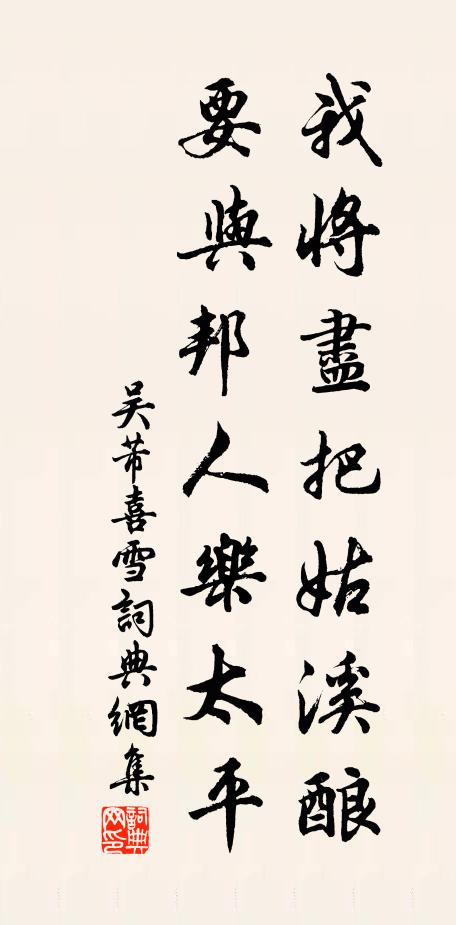 我將盡把姑溪酿
要與邦人樂太平
吴芾喜雪詞典網集
詞典网印